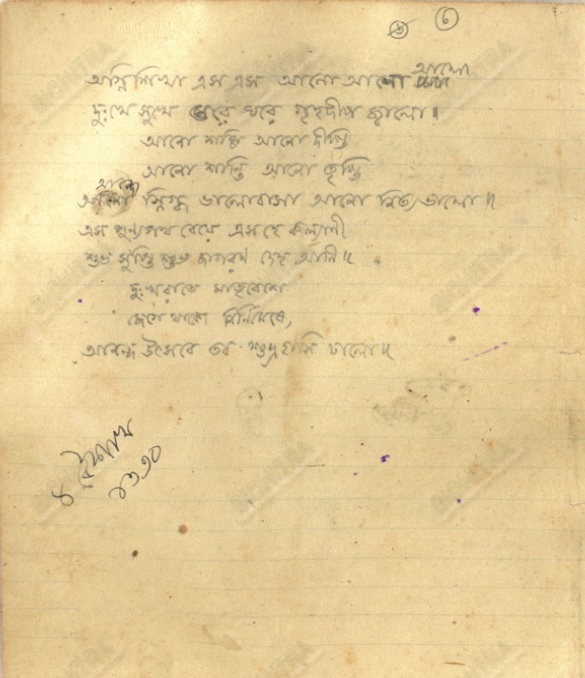 অগ্নিশিখা এস এস আনো আনো আলো
দুঃখে সুখে ঘরে ঘরে গৃহদীপ জ্বালো॥
আনো শক্তি আনো দীপ্তি
আনো শান্তি আনো তৃপ্তি
আনো স্নিগ্ধ ভালোবাসা আনো নিত্য ভালো॥
এস পুণ্যপথ বেয়ে এস হে কল্যাণী
শুভ সুপ্তি শুভ জাগরণ দেহ আনি॥
দুঃখরাতে মাতৃবেশে
জেগে থাকো নির্নিমেষে,
আনন্দ উৎসবে তব শুভ্র হাসি ঢালো॥
৪ বৈশাখ
১৩৩০